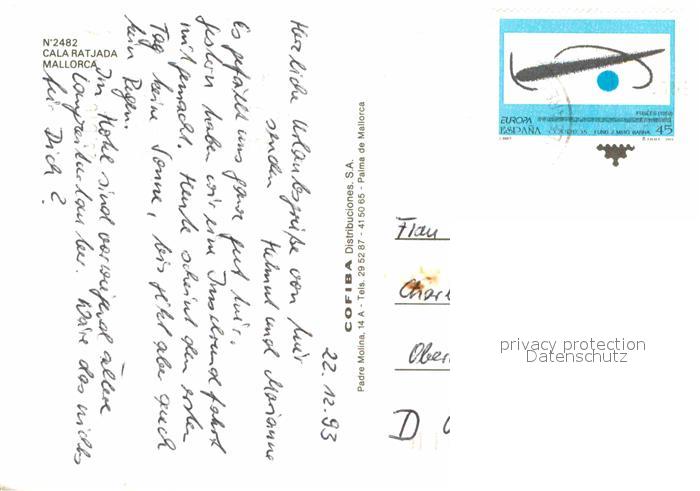 N° 2482
CALA RATJADA
MALLORCA
22.12.93
Herzliche Urlaubsgrüße von hier
senden Helmut und Marianne
Es gefällt uns ganz gut hier.
Gestern haben wir eine Inselrundfahrt
mitgemacht. Heute scheint den ersten
Tag keine Sonne, bis jetzt aber auch
kein Regen.
Im Hotel sind vorwiegend ältere
Langzeiturlauber. Wäre das nichts
für Dich?
COFIBA Distribuciones, S.A.
Padre Molina, 14 A - Tels. 29 52 87 - 41 50 65 - Palma de Mallorca
EUROPA
ESPAÑA
45
Frau
Ober
D
privacy protection
Datenschutz